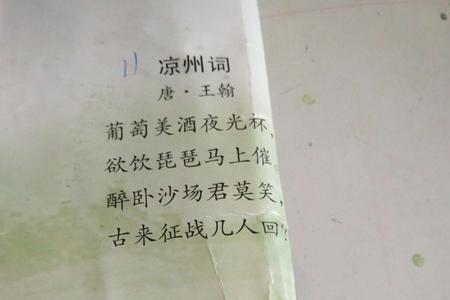 11 凉州词
唐·王翰
葡萄美酒夜光杯，
欲饮琵琶马上催。
醉卧沙场君莫笑，
古来征战几人回？